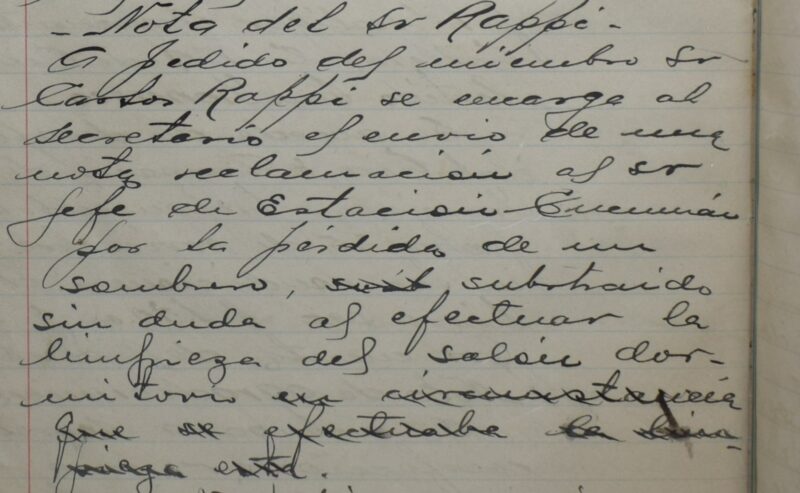 - Nota del Sr Rappi -
A pedido del miembro Sr
Carlos Rappi se encarga al
secretario el envio de una
nota reclamación al Sr
Jefe de Estación Tucumán
por la pérdida de un
sombrero, substraido
sin duda al efectuar la
limpieza del salón dor-
mitorio en circunstancia
que se efectuaba la lim-
pieza esta.